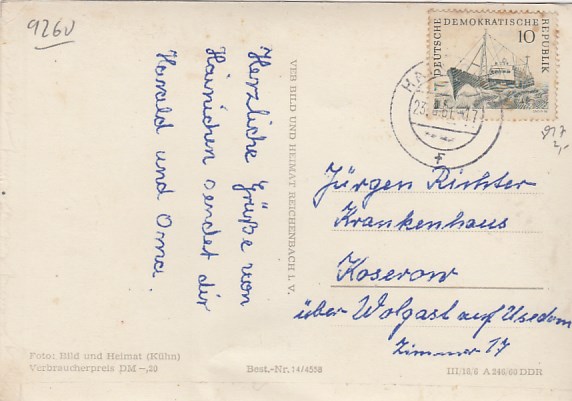 9260
Herzliche Grüße von
Hainichen sendet dir
Harald und Oma.
VEB BILD UND HEIMAT REICHENBACH I. V.
DEUTSCHE DEMOKRATISCHE REPUBLIK
10
23.
61-17
f
917
2,-
Jürgen Richter
Krankenhaus
Koserow
über Wolgast auf Usedom
Zimmer 17
Foto: Bild und Heimat (Kühn)
Verbraucherpreis DM —,20
Best.-Nr. 14/4558
III/18/6 A 246/60 DDR